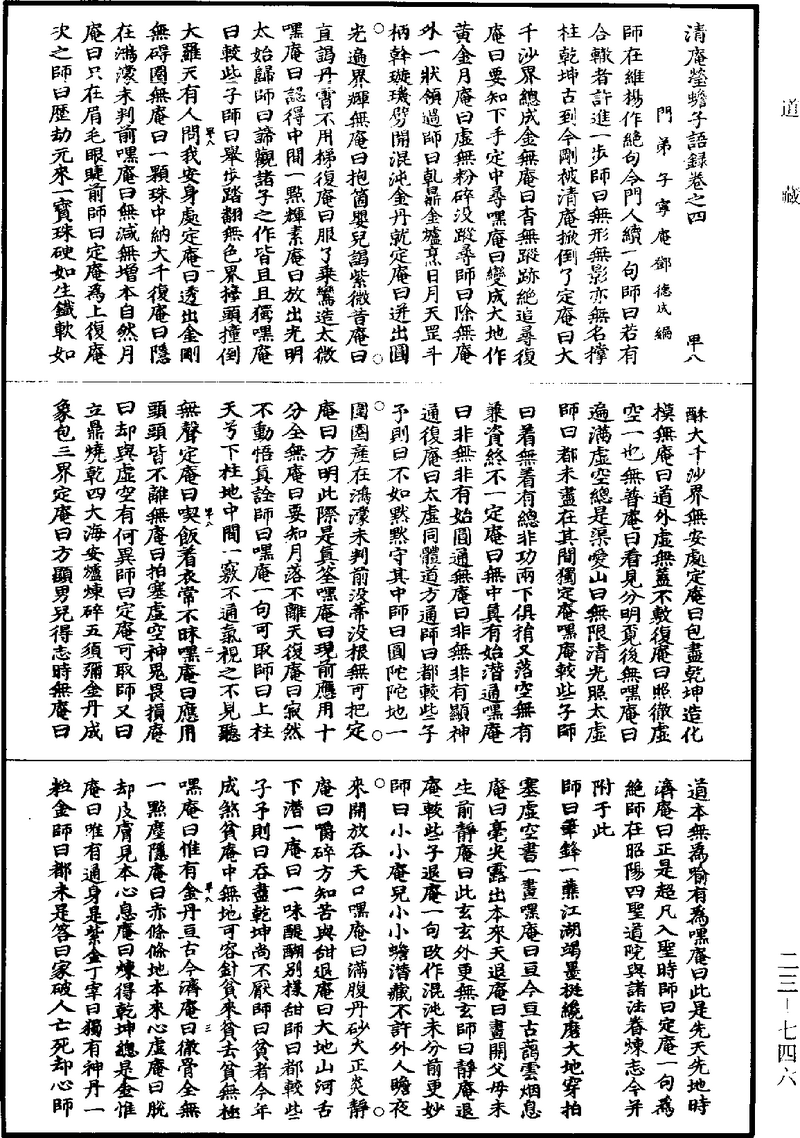 道藏
二三—七四六
清庵瑩蟾子語錄卷之四 早八
門弟子寧庵鄧德成編
師在維揚作絕句令門人續一句師曰若有
合轍者許進一步師曰無形無影亦無名撑
柱乾坤古到今剛被清庵掀倒了定庵曰大
千沙界總成金無庵曰杳無蹤跡絕追尋復
庵曰要知下手定中尋嘿庵曰變成大地作
黃金月庵曰虛無粉碎沒蹤尋師曰除無庵
外一狀領過師曰乹鼎金爐烹日月天罡斗
柄斡璇璣劈開混沌金丹就定庵曰迸出圓
光遍界輝無庵曰抱箇嬰兒謁紫微昔庵曰
直謁丹霄不用梯復庵曰服了乘鸞造太微
嘿庵曰認得中間一點輝素庵曰放出光明
太始歸師曰諦觀諸子之作皆且且獨嘿庵
曰較些子師曰舉步踏翻無色界擡頭撞倒
大羅天有人問我安身處定庵曰透出金剛
無碍圈無庵曰一顆珠中納大千復庵曰隱
在鴻濛未判前嘿庵曰無減無增本自然月
庵曰只在眉毛眼睫前師曰定庵為上復庵
次之師曰歷劫元來一寶珠硬如生鐵軟如
酥大千沙界無安處定庵曰包盡乾坤造化
模無庵曰道外虛無蓋不敷復庵曰照徹虛
空一也無普庵曰看見分明覓後無嘿庵曰
遍滿虛空總是渠愛山曰無限清光照太虛
師曰都未盡在其間獨定庵嘿庵較些子師
曰着無着有總非功兩下俱捎又落空無有
兼資終不一定庵曰無中真有始潛通嘿庵
曰非無非有始圓通無庵曰非無非有顯神
通復庵曰太虛同體道方通師曰都較些子
予則曰不如黙黙守其中師曰圓陀陀地一
團圞產在鴻濛未判前沒蒂沒根無可把定
庵曰方明此際是真筌嘿庵曰現前應用十
分全無庵曰要知月落不離天復庵曰寂然
不動悟真詮師曰嘿庵一句可取師曰上柱
天兮下柱地中間一竅不通氣視之不見聽
無聲定庵曰喫飯着衣常不昧嘿庵曰應用
頭頭皆不離無庵曰拍塞虛空神鬼畏損庵
曰却與虛空有何異師曰定庵可取師又曰
立鼎燒乾四大海安爐煉碎五須彌金丹成
象包三界定庵曰方顯男兒得志時無庵曰
道本無為喻有為嘿庵曰此是先天先地時
濟庵曰正是超凡入聖時師曰定庵一句為
絕師在昭陽四聖道院與諸法眷煉志今并
附于此
師曰筆鋒一蘸江湖竭墨挺纔磨大地穿拍
塞虛空書一畫嘿庵曰亘今亘古藹雲烟息
庵曰毫尖露出本來天退庵曰畫開父母未
生前靜庵曰此玄玄外更無玄師曰靜庵退
庵較些子退庵一句改作混沌未分前更妙
師曰小小庵兒小小蟾潛藏不許外人瞻夜
來開放吞天口嘿庵曰滿腹丹砂大正炎靜
庵曰嚼碎方知苦與甜退庵曰大地山河舌
下潛一庵曰一味醍醐別樣甜師曰都較些
子予則曰吞盡乾坤尚不厭師曰貧者今年
成煞貧庵中無地可容針貧來貧去貧無極
嘿庵曰惟有金丹亘古今濟庵曰徹骨全無
一點塵隱庵曰赤條條地本來心虛庵曰脫
却皮膚見本心息庵曰煉得乾坤總是金惟
庵曰唯有通身是紫金丁宰曰獨有神丹一
粒金師曰都未是答曰家破人亡死却心師